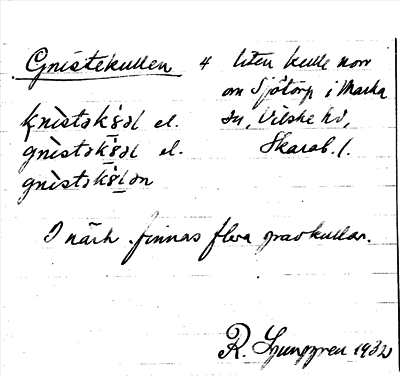 Gnistekullen 4 liten kulle norr
om Sjötorp i Marka
sn, Vilske hd,
Skarab. l.
gnìstək´8əl el.
gnìstək´8əl el.
gnìstək´8lən
I närh. finnas flera gravkullar.
R. Ljunggren 1932